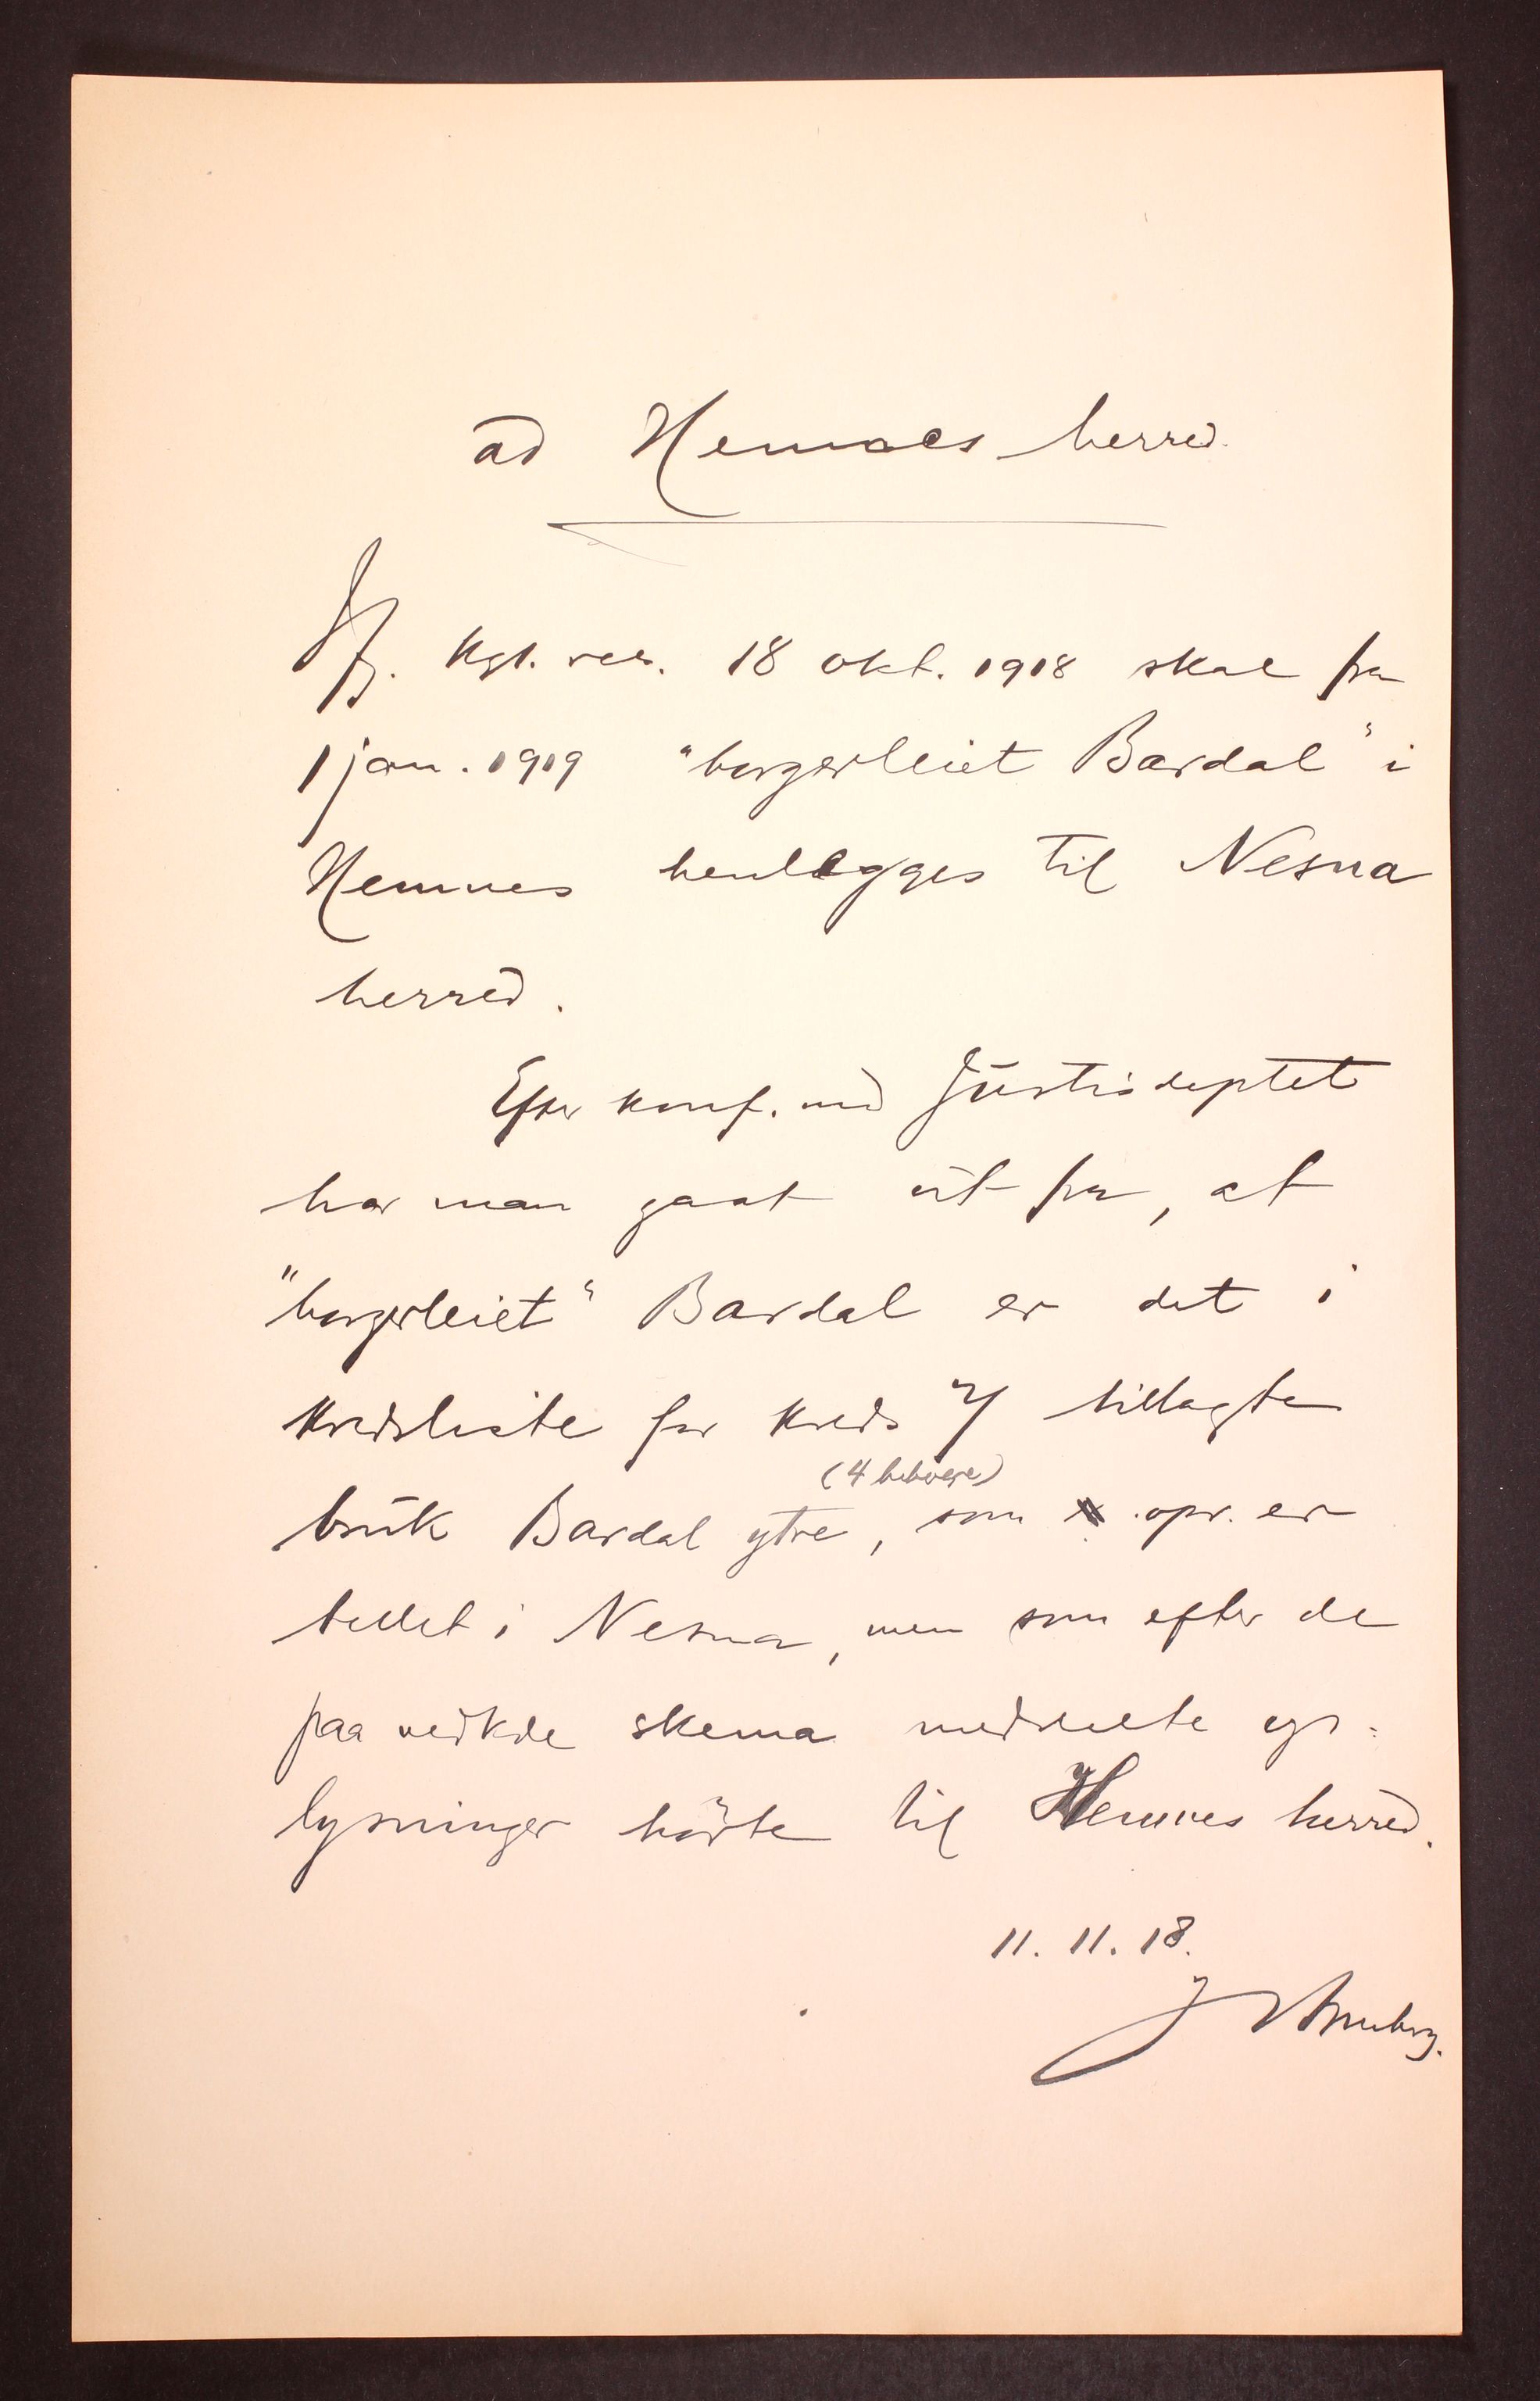 ad Hemnes herred.
Jfr. kgl. res. 18 okt. 1918 skal fra
1 jan. 1919 "borgerleiet Bardal" i
Hemnes henlegges til Nesna
herred.
Efter konf. med Justisdeptet
har man gaat ut fra, at
"borgerleiet" Bardal er det i
kredsliste for kreds 7 tillagte
(4 beboere)
bruk Bardal ytre, som opr. er
tellet i Nesna, men som efter de
paa vedkde skema meddelte op=
lysninger hørte til Hemnes herred.
11. 11. 18.
J